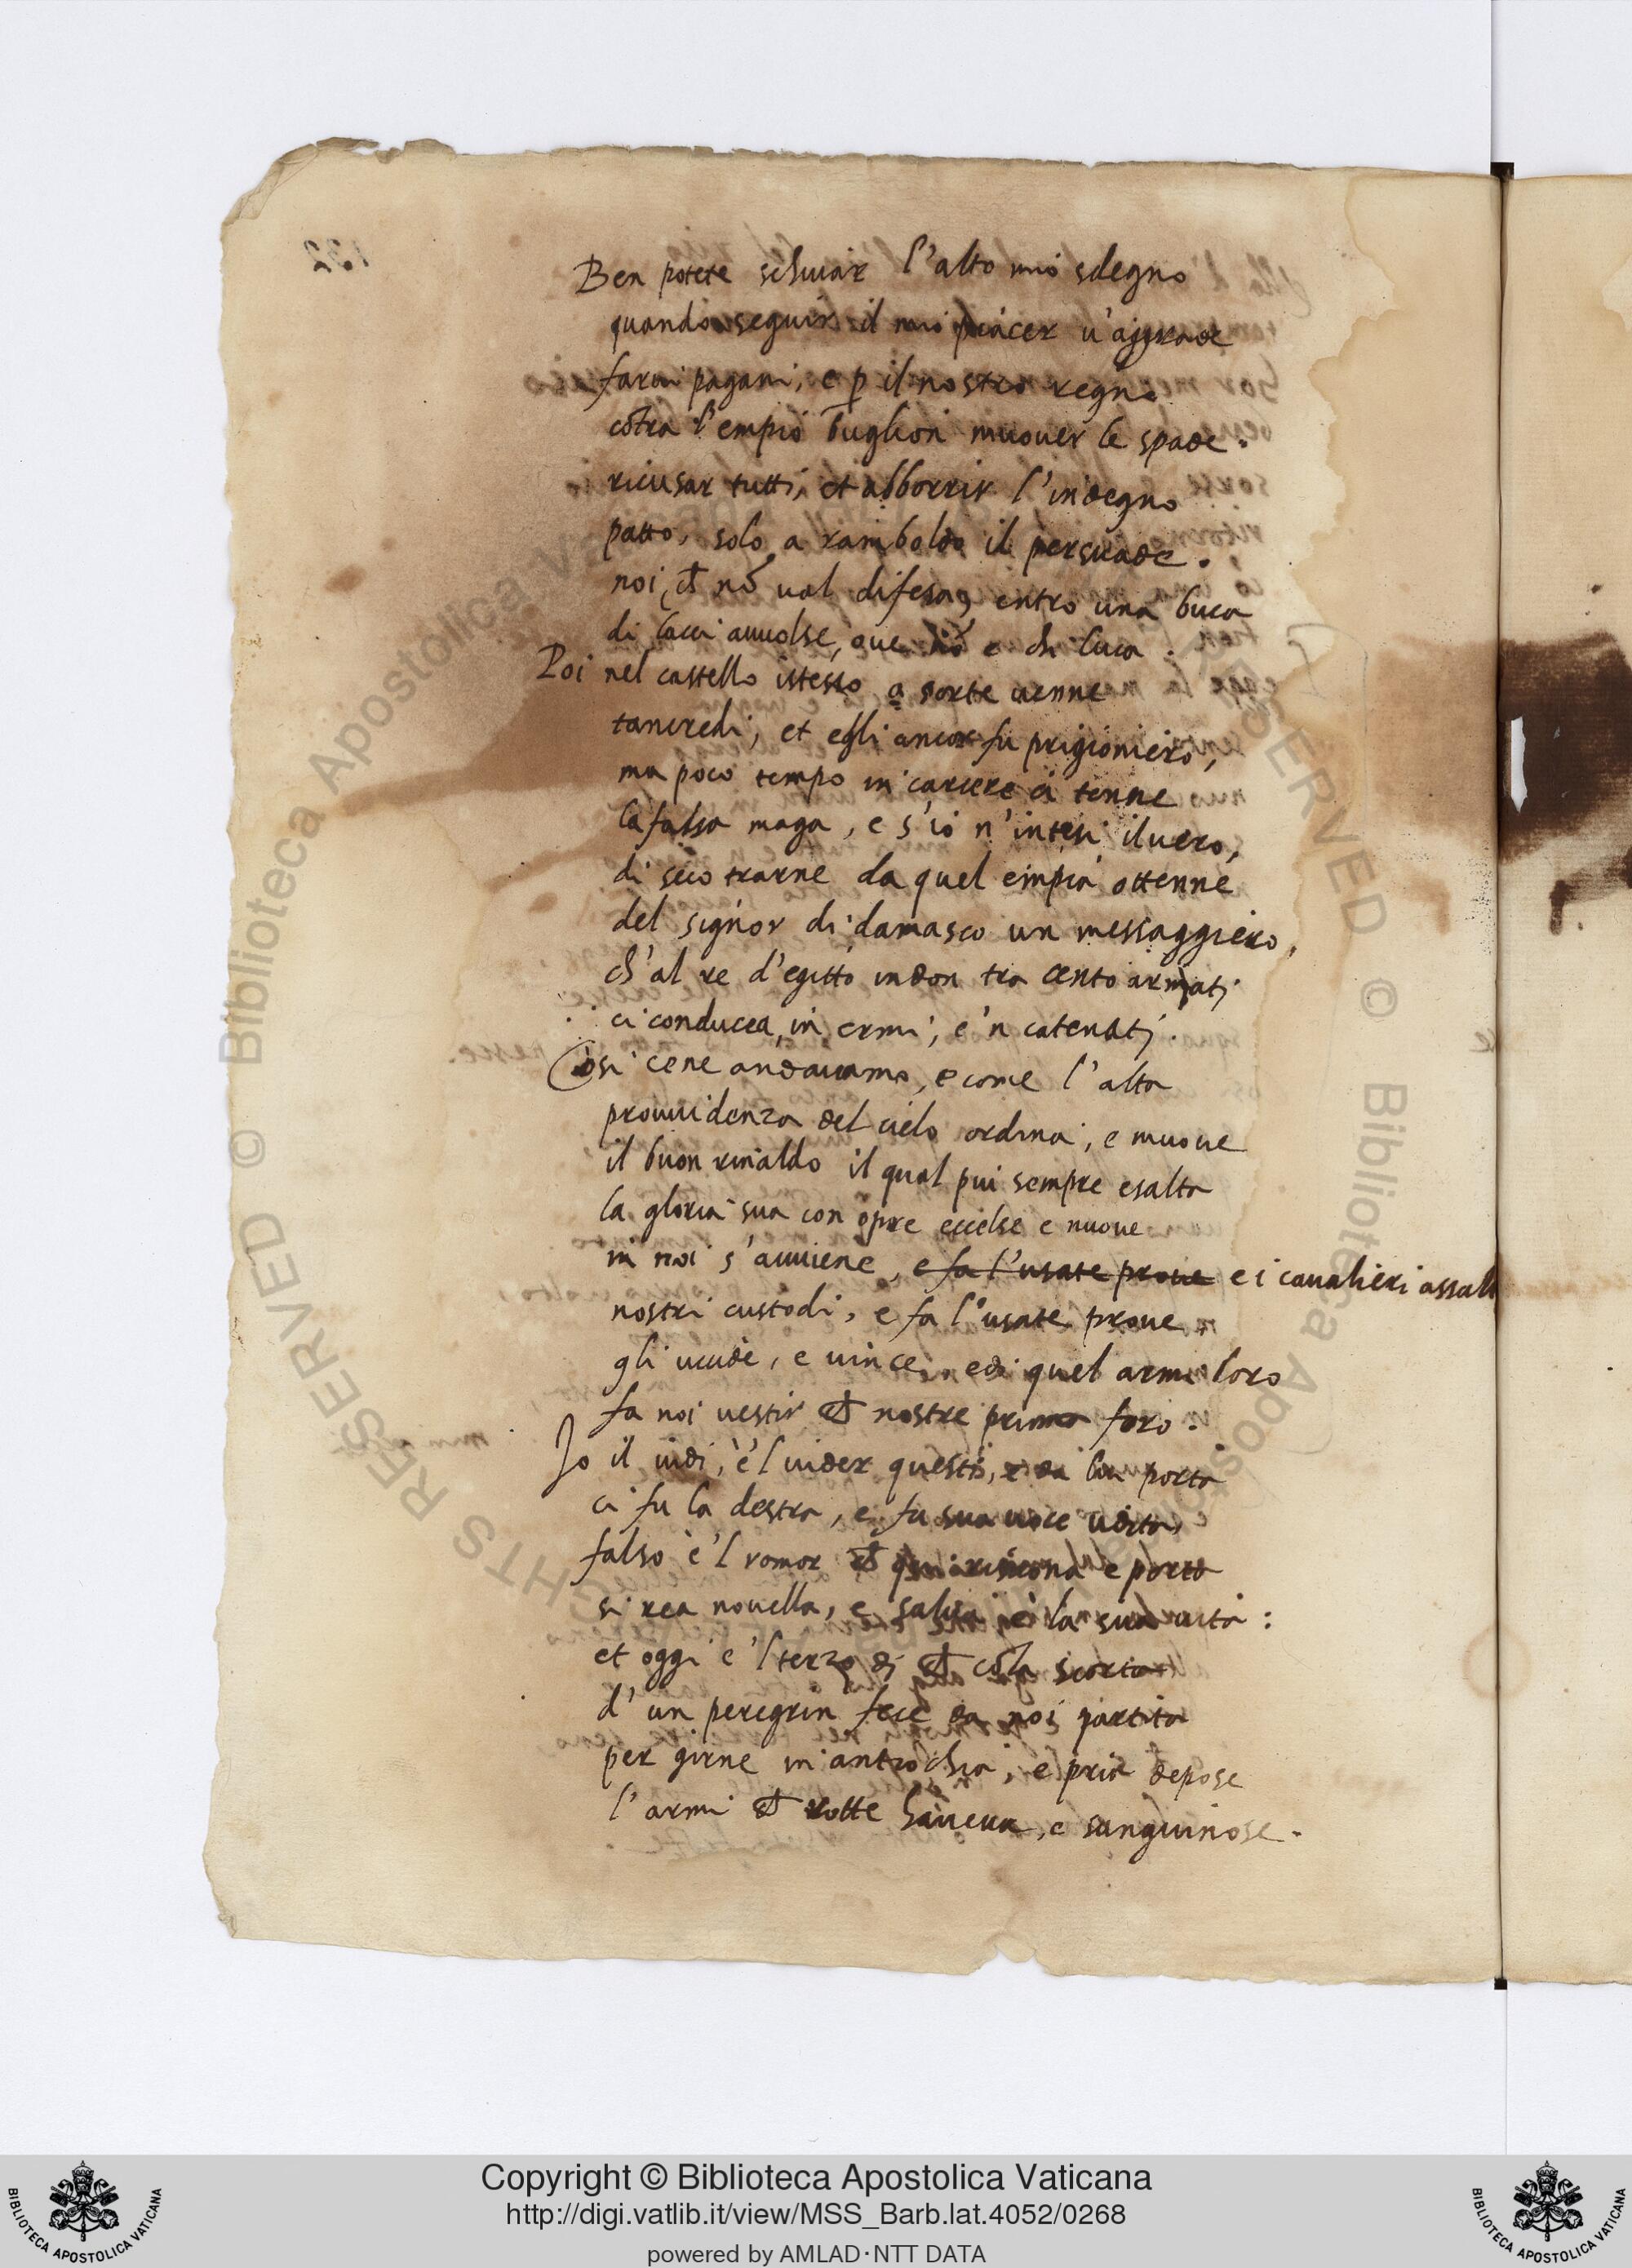 Ben potete schiuar l'alto mio sdegno
quando seguir il mio piacer u'aggrade
farui pagani, e ꝑ il nostro regno
cõtra l'empio buglion muouer le spade.
ricusar tutti, et abborrir l'indegno
patto, solo a ramboldo il persuade.
noi, cħ nõ ual difesa, entro una buca
di lacci auuolse, oue nõ e ch luca.
Poi nel castello istesso a sorte uenne
tancredi, et egli ancor fu prigioniero,
ma poco tempo in carcere ci tenne
la falsa maga, e s'io n'intesi il uero,
di seco trarne da quel empia ottenne
del signor di damasco un messaggiero,
ch'al re d'egitto in don tra cento armati
ci conducea in ermi, e'n catenati.
Cosi cene andauamo, e come l'alta
prouuidenza del cielo ordina, e muoue
il buon rinaldo il qual piu sempre esalta
la gloria sua con opre eccelse e nuoue
in noi s'auuiene, e fa l'usate proue e i caualieri assal
nostri custodi, e fa l'usate proue,
gli uccide, e uince, e di quel armi loro
fa noi uestir cħ nostre prima foro.
Io il uidi, e'l uider questi, e da lui porta
ci fu la destra, e fu sua uoce udita,
falso è'l romor cħ qui risuona e porta
si rea nouella, e salua è la sua uita:
et oggi e'l terzo di cħ cõ la scorta
d'un peregrin fece da noi partita
per girne in antiochia, e pria depose
l'armi cħ rotte haueua, e sanguinose.
132
Copyright © Biblioteca Apostolica Vaticana
http://digi.vatlib.it/view/MSS_Barb.lat.4052/0268
powered by AMLAD·NTT DATA
BIBLIOTECA APOSTOLICA VATICANA
BIBLIOTECA APOSTOLICA VATICANA